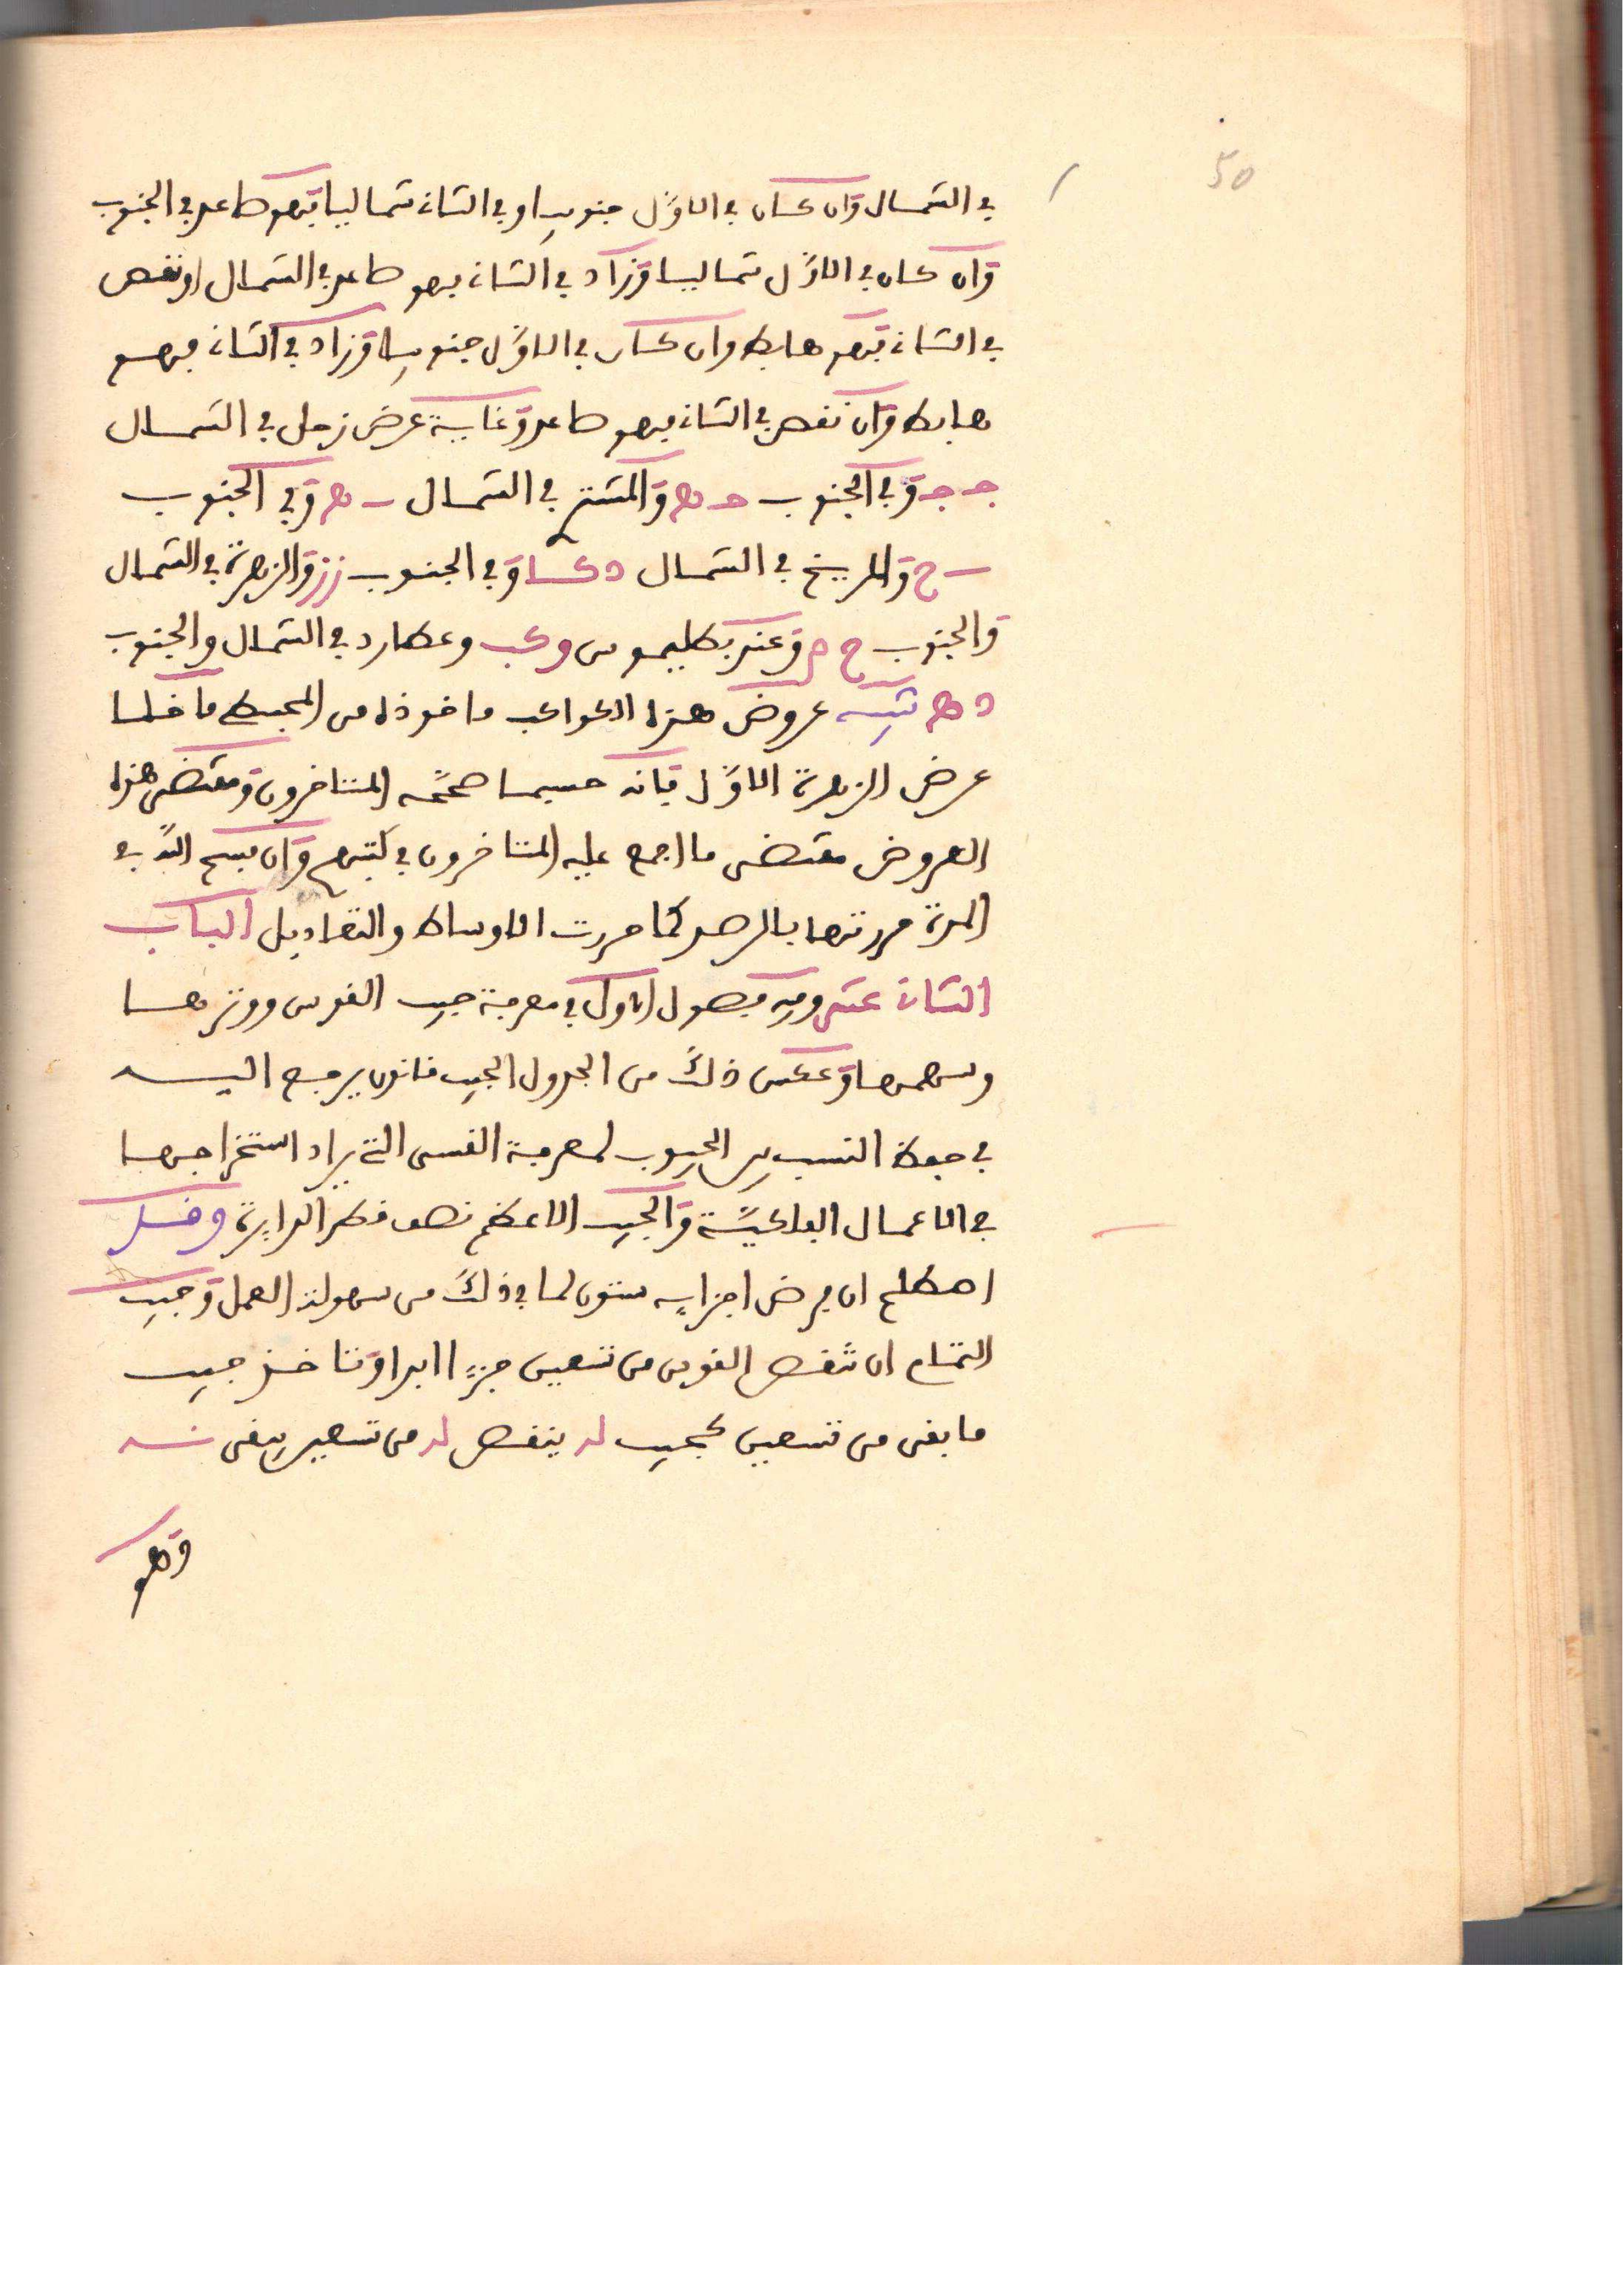 50
في الشمال وان كان في الاول جنوبيا وفي الثاني شماليا فهو صاعد في الجنوب
وان كان في الاول شماليا وزاد في الثاني فهو صاعد في الشمال او نقص
في الثاني فهو هابط وان كان في الاول جنوبيا وزاد في الثاني فهو
هابط وان نقص في الثاني فهو صاعد وغاية عرض زحل في الشمال
ج ج وفي الجنوب ج ه والمشتري في الشمال ب ه وفي الجنوب
ب ح والمريخ في الشمال د كا وفي الجنوب ز ز والزهرة في الشمال
والجنوب ح م وعند بطليموس و كب وعطارد في الشمال والجنوب
د ه تنبيه عروض هذه الكواكب ماخوذة من المجسطي ما خلا
عرض الزهرة الاول فانه حسبما صححه المتاخرون ومقتضى هذه
العروض مقتضى ما اجمع عليه المتاخرون في كتبهم وان فسح الله في
المدة حررتها بالرصد كما حررت الاوساط والتعاديل الباب
الثاني عشر وفيه فصول الاول في معرفة جيب القوس ووترها
وسهمها وعكس ذلك من الجدول الجيب قانون يرجع اليه
في حفظ النسب بين الجيوب لمعرفة القسي التي يراد استخراجها
في الاعمال الفلكية والجيب الاعظم نصف قطر الدايرة وقد
اصطلح ان يفرض اجزايه ستون لما في ذلك من سهولة العمل وجيب
التمام ان تنقص القوس من تسعين جزءا ابدا وتاخذ جيب
ما بقي من تسعين كجيب له ينقص له من تسعين يبقى نه
وهو